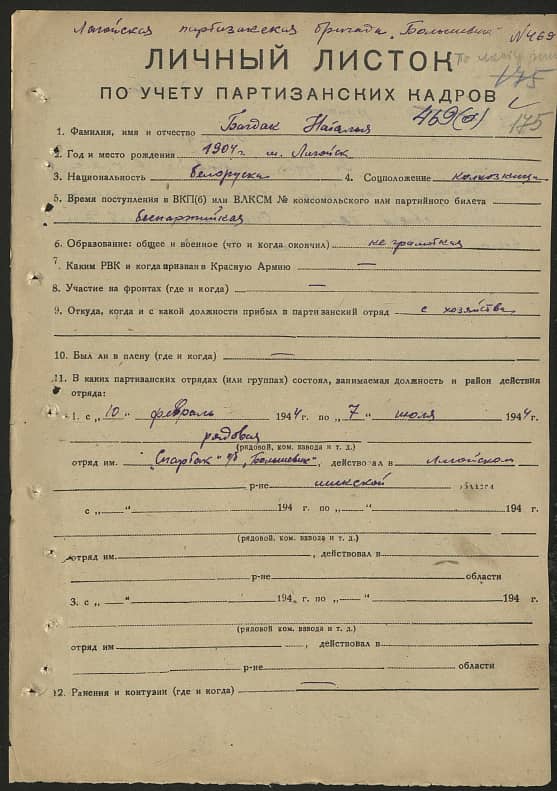 Логойская партизанская бригада „Большевик" № 469
ЛИЧНЫЙ ЛИСТОК
175
ПО УЧЕТУ ПАРТИЗАНСКИХ КАДРОВ
469(а) 175
1. Фамилия, имя и отчество Богдан Наталья
2. Год и место рождения 1904 г. м. Логойск
3. Национальность белоруска 4. Соцположение колхозница
5. Время поступления в ВКП(б) или ВЛКСМ № комсомольского или партийного билета
беспартийная
6. Образование: общее и военное (что и когда окончил) не грамотная
7. Каким РВК и когда призван в Красную Армию —
8. Участие на фронтах (где и когда) —
9. Откуда, когда и с какой должности прибыл в партизанский отряд с хозяйства
10. Был ли в плену (где и когда) —
11. В каких партизанских отрядах (или группах) состоял, занимаемая должность и район действия
отряда:
1. с „10" февраль 1944 г. по „7" июля 1944 г.
рядовая
(рядовой, ком. взвода и т. д.)
отряд им. „Спартак" п/б „Большевик", действовал в Логойском
р-не минской области
с „—" 194 г. по „—" 194 г.
(рядовой, ком. взвода и т. д.)
отряд им. , действовал в
р-не области
3. с „—" 194 г. по „—" 194 г.
(рядовой, ком. взвода и т. д.)
отряд им. , действовал в
р-не области
12. Ранения и контузии (где и когда) —